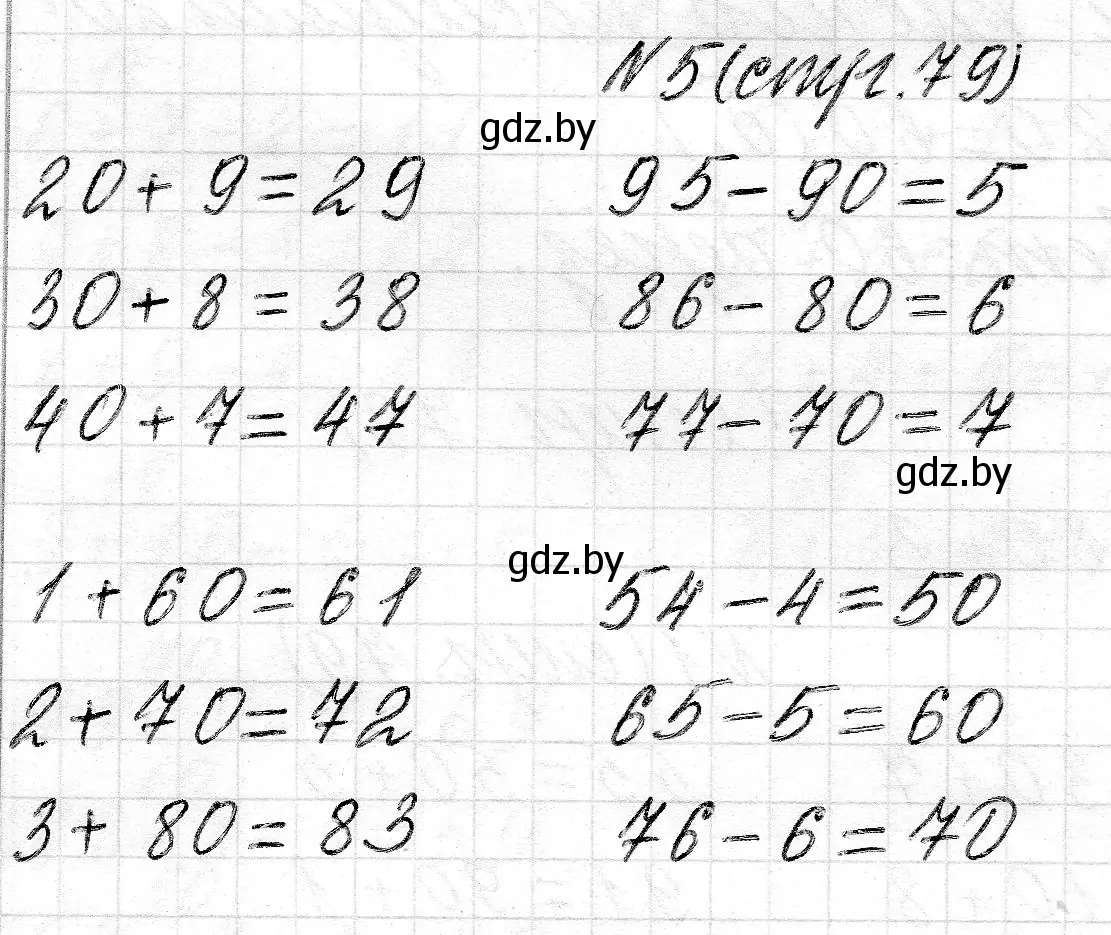 № 5 (стр. 79)
gdz.by
20 + 9 = 29 95 - 90 = 5
30 + 8 = 38 86 - 80 = 6
40 + 7 = 47 77 - 70 = 7
gdz.by
gdz.by
1 + 60 = 61 54 - 4 = 50
2 + 70 = 72 65 - 5 = 60
3 + 80 = 83 76 - 6 = 70